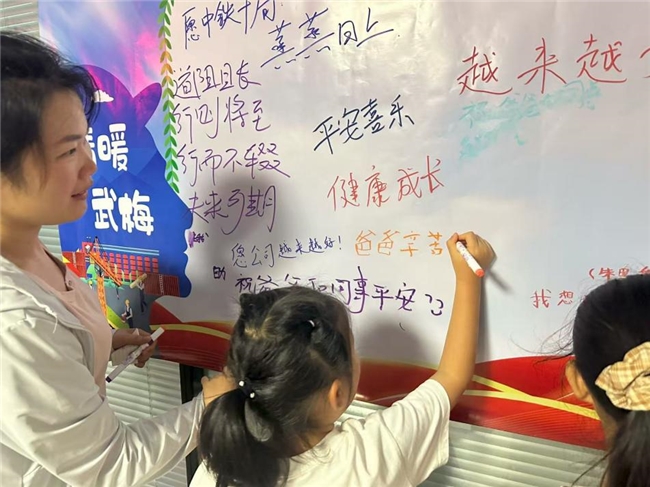 愿中铁十局
蒸蒸日上
道阻且长
行则将至
行而不辍
未来可期
平安喜乐
越来越
健康成长
总公司越来越好!
爸爸辛苦
和同事平安
我想
暖
武梅